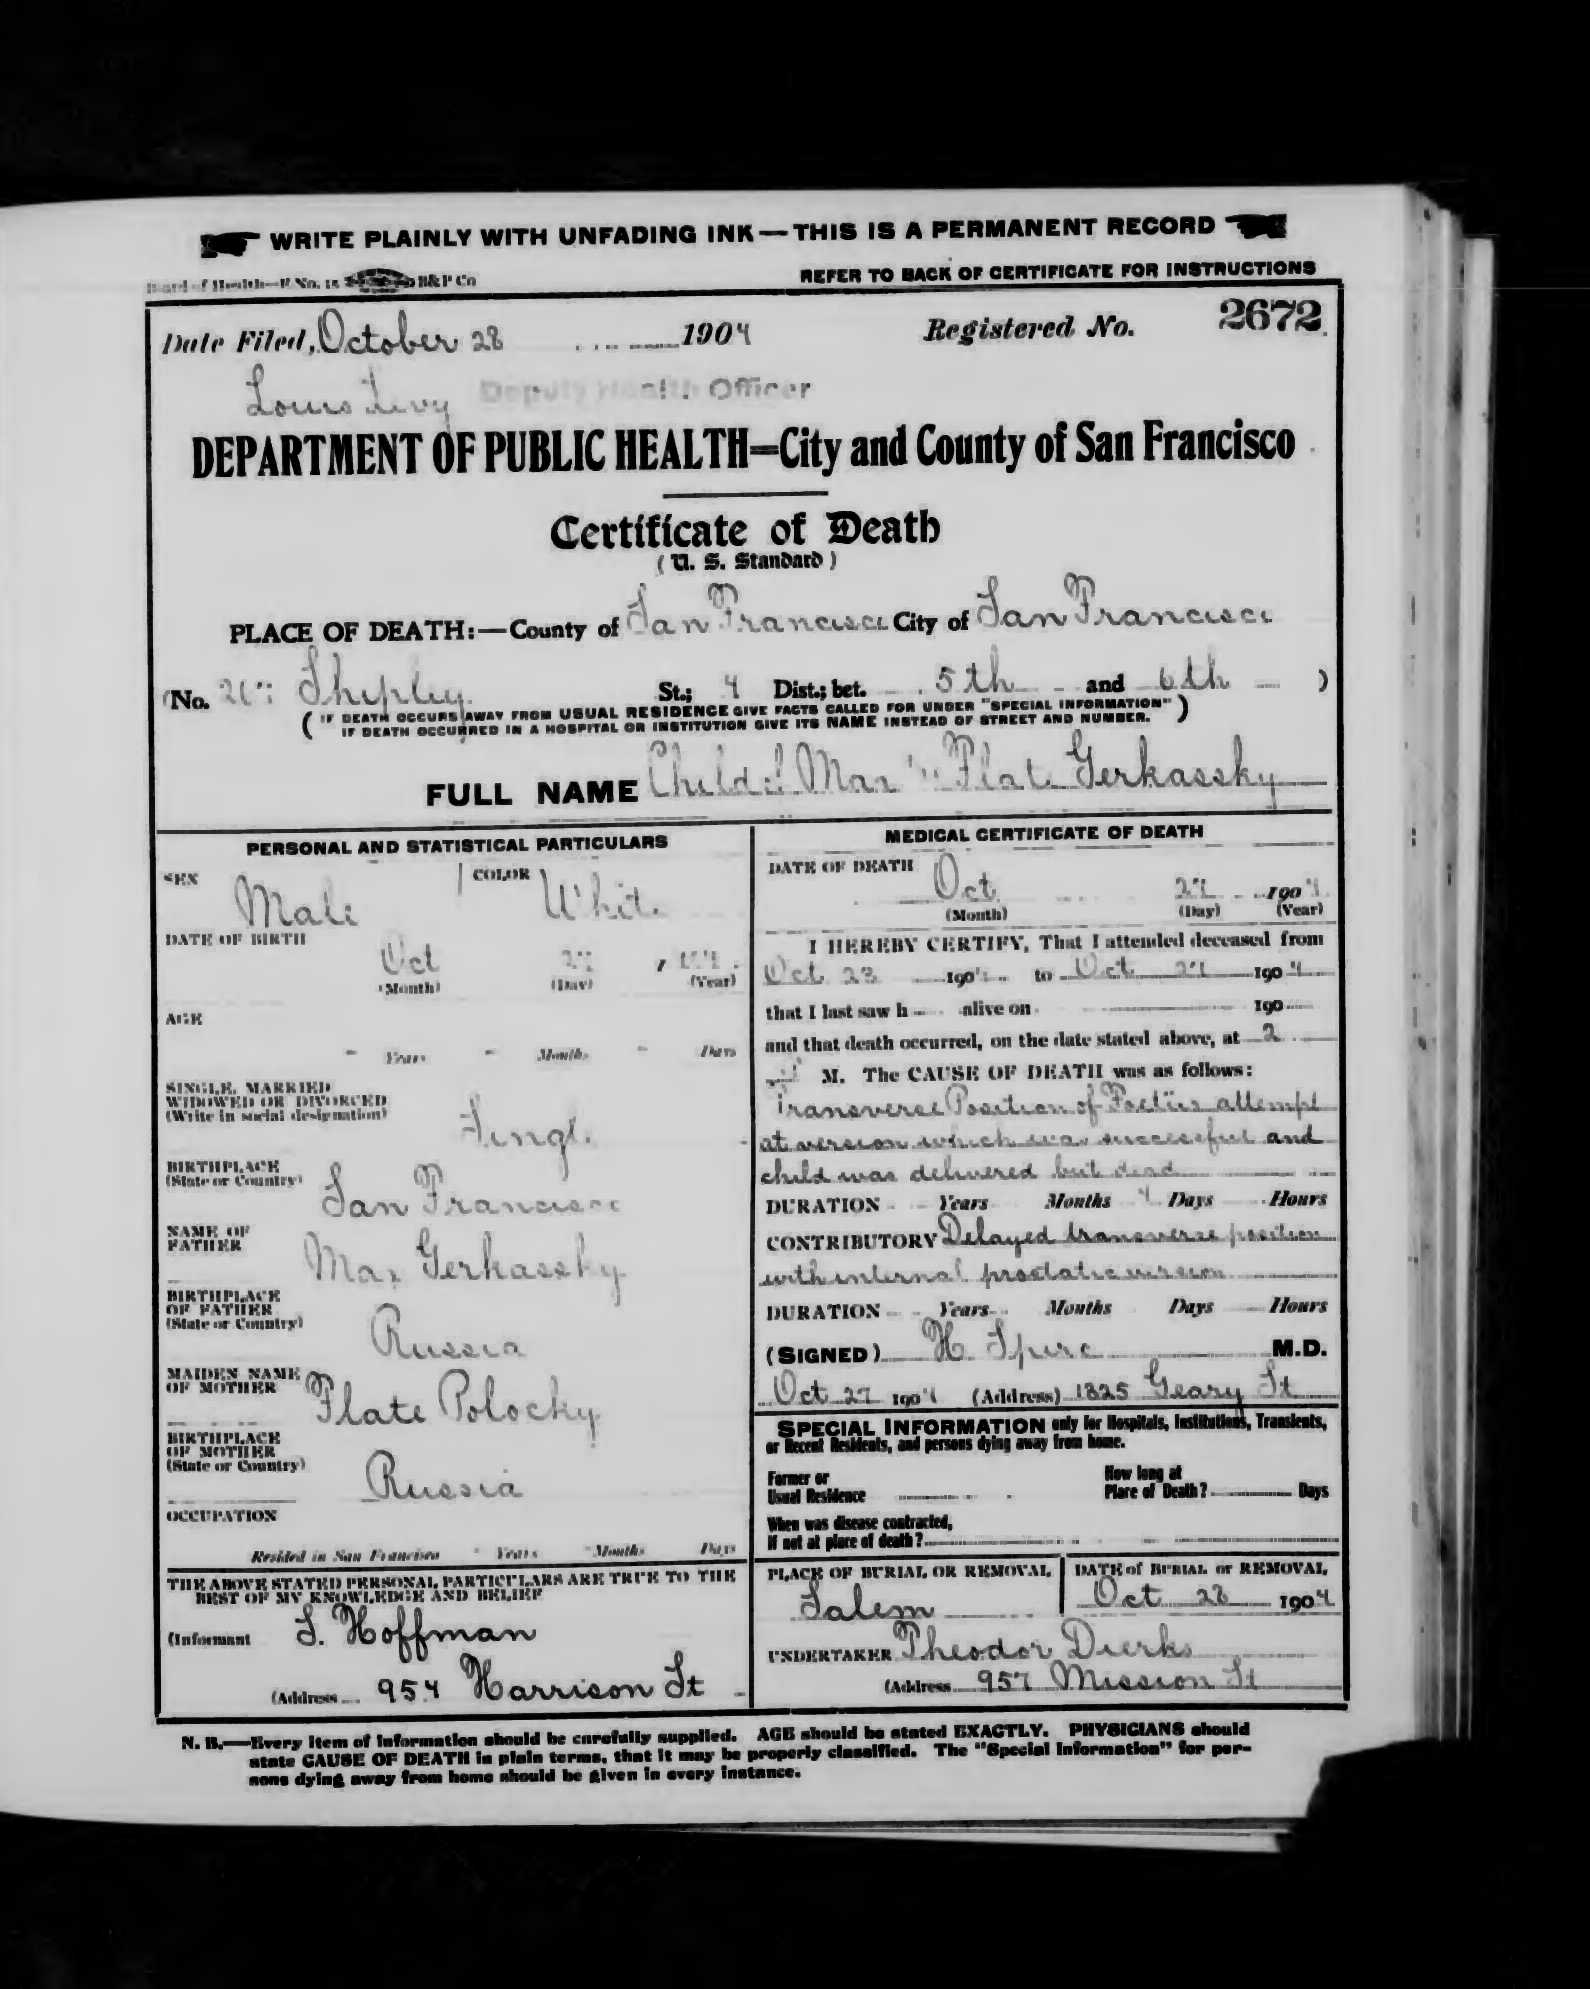 WRITE PLAINLY WITH UNFADING INK — THIS IS A PERMANENT RECORD
Board of Health—F No. 15 B&P Co REFER TO BACK OF CERTIFICATE FOR INSTRUCTIONS
Date Filed, October 28 1904 Registered No. 2672
Louis Levy Deputy Health Officer
DEPARTMENT OF PUBLIC HEALTH=City and County of San Francisco
Certificate of Death
(U. S. Standard)
PLACE OF DEATH:—County of San Francisco City of San Francisco
(No. Shipley St.; 4 Dist.; bet. 5th and 6th )
(IF DEATH OCCURS AWAY FROM USUAL RESIDENCE GIVE FACTS CALLED FOR UNDER "SPECIAL INFORMATION"
IF DEATH OCCURRED IN A HOSPITAL OR INSTITUTION GIVE ITS NAME INSTEAD OF STREET AND NUMBER.)
FULL NAME Child of Max Flate Gerkassky
PERSONAL AND STATISTICAL PARTICULARS
SEX Male COLOR White
DATE OF BIRTH
Oct 27
(Month) (Day) (Year)
AGE
Years Months Days
SINGLE, MARRIED
WIDOWED OR DIVORCED
(Write in social designation) Single
BIRTHPLACE
(State or Country) San Francisco
NAME OF
FATHER Max Gerkassky
BIRTHPLACE
OF FATHER
(State or Country) Russia
MAIDEN NAME
OF MOTHER Flate Polocky
BIRTHPLACE
OF MOTHER
(State or Country) Russia
OCCUPATION
Resided in San Francisco Years Months Days
THE ABOVE STATED PERSONAL PARTICULARS ARE TRUE TO THE
BEST OF MY KNOWLEDGE AND BELIEF
(Informant S. Hoffman
(Address 954 Harrison St
MEDICAL CERTIFICATE OF DEATH
DATE OF DEATH
Oct 27 1904
(Month) (Day) (Year)
I HEREBY CERTIFY, That I attended deceased from
Oct 23 1904 to Oct 27 1904
that I last saw h alive on 190
and that death occurred, on the date stated above, at 2
M. The CAUSE OF DEATH was as follows:
Transverse Position of Foetus attempt
at version which was successful and
child was delivered but dead
DURATION Years Months 4 Days Hours
CONTRIBUTORY Delayed transverse position
with internal version
DURATION Years Months Days Hours
(SIGNED) H. Spiro M.D.
Oct 27 1904 (Address) 1325 Geary St
SPECIAL INFORMATION only for Hospitals, Institutions, Transients,
or Recent Residents, and persons dying away from home.
Former or
Usual Residence
How long at
Place of Death? Days
When was disease contracted,
If not at place of death?
PLACE OF BURIAL OR REMOVAL DATE of BURIAL or REMOVAL
Salem Oct 28 1904
UNDERTAKER Theodor Dierks
(Address 957 Mission St
N. B.—Every item of information should be carefully supplied. AGE should be stated EXACTLY. PHYSICIANS should
state CAUSE OF DEATH in plain terms, that it may be properly classified. The "Special Information" for per-
sons dying away from home should be given in every instance.